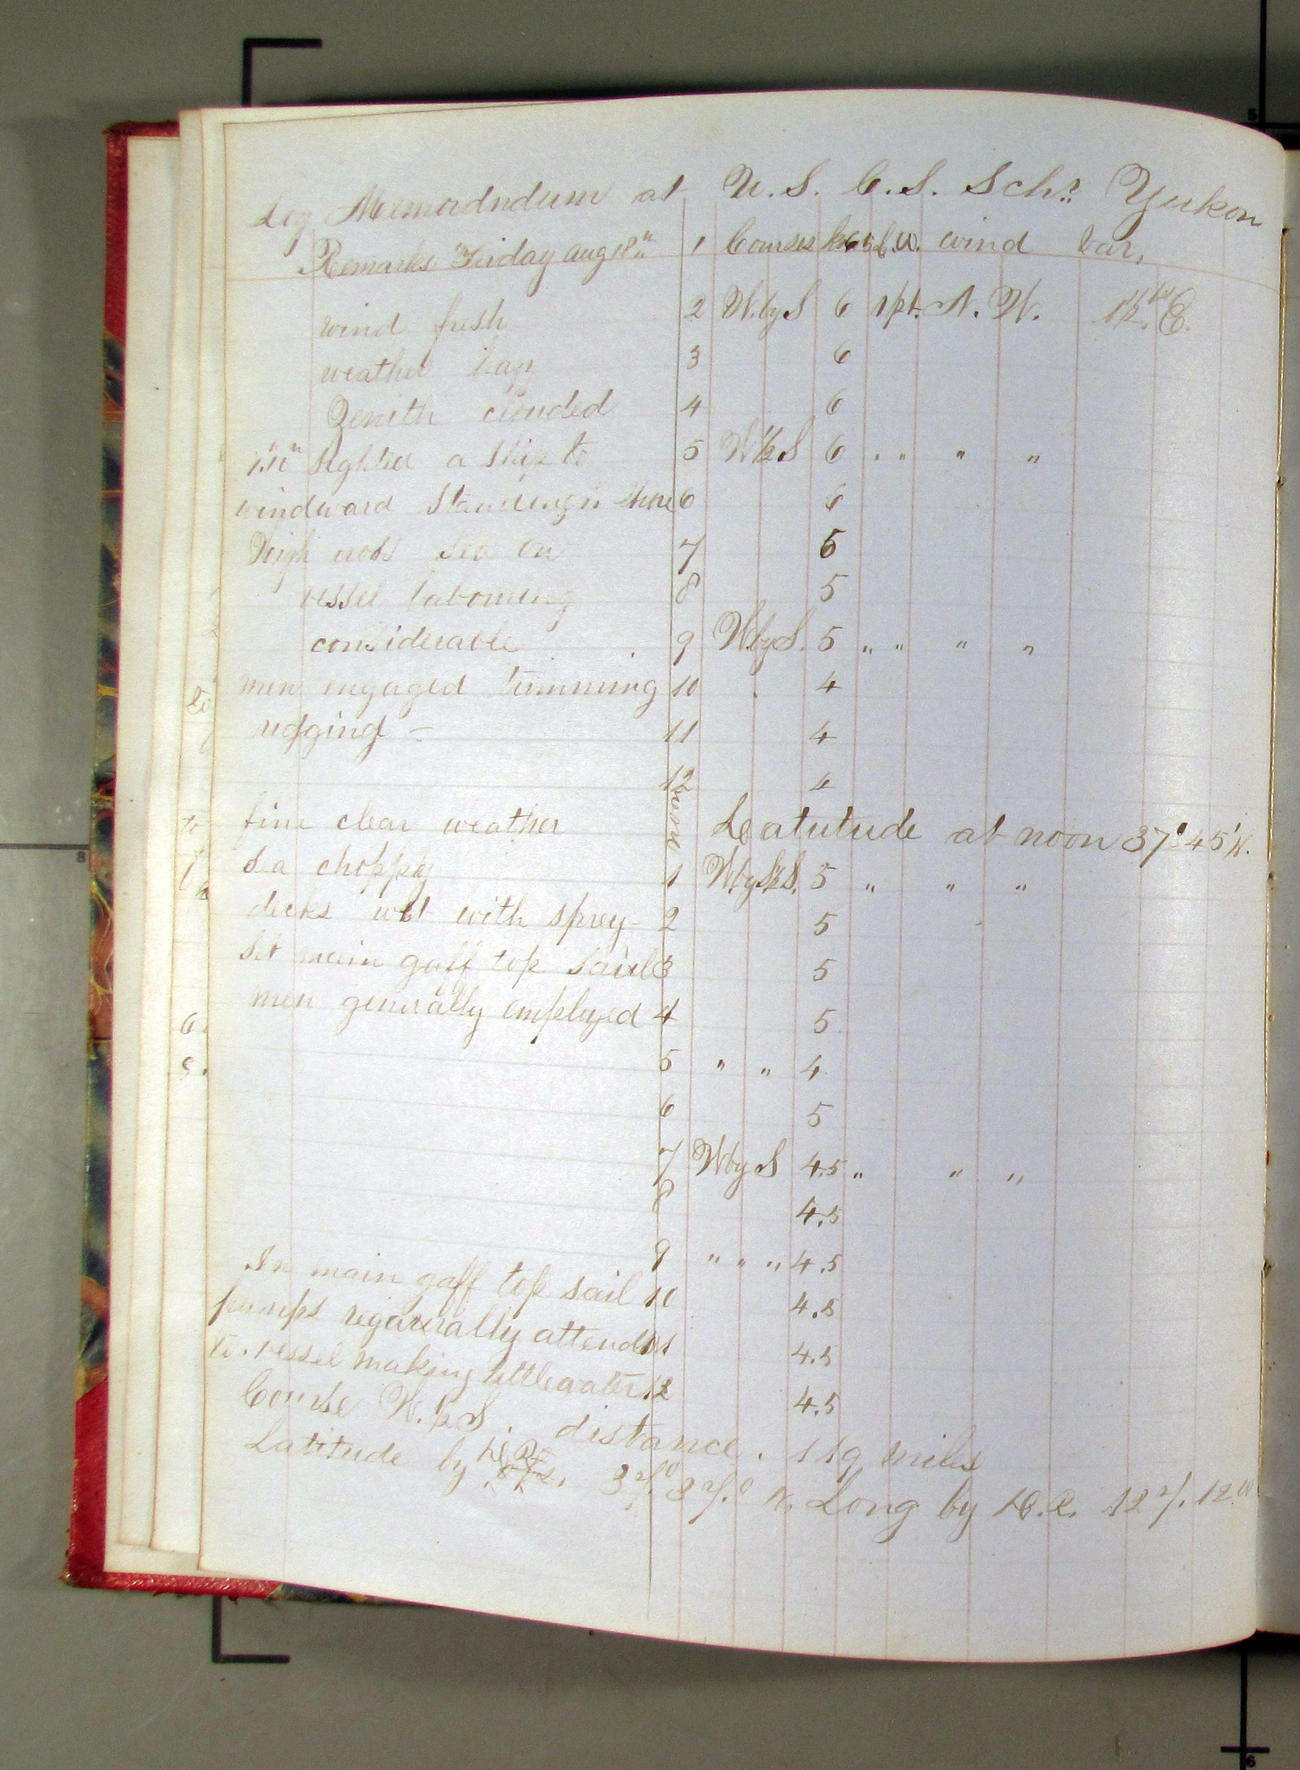 Log Memordndum at U.S. C.S. Schr. Yukon
Remarks Friday aug 18" 1 Courses L.W. wind Var.
wind fresh 2 W.byS 6 1pt. N. W. 1½ pts E.
weather hazy 3 6
Zenith clouded 4 6
sighted a ship to 5 W½S 6 " " " "
windward Standing in shore 6 6
High cross sea on 7 5
vessel labouring 8 5
considerable 9 WbyS. 5 " " " "
men engaged trimming 10 4
rigging - 11 4
12 4
fine clear weather noon Latutude at noon 37° 45' N.
sea choppy 1 Wby½S. 5 " " "
decks wet with sprey 2 5
Set main gaff top sail 3 5
men generally employed 4 5
5 " " 4
6 5
7 WbyS 4.5 " " "
8 4.5
9 " " " 4.5
In main gaff top sail 10 4.5
pumps regarrally attend 11 4.5
to. vessel making little water 12 4.5
Course W.½S. distance. 119 miles
Latitude by D.R. 37.° 37.° N. Long by D.R. 127.12.W